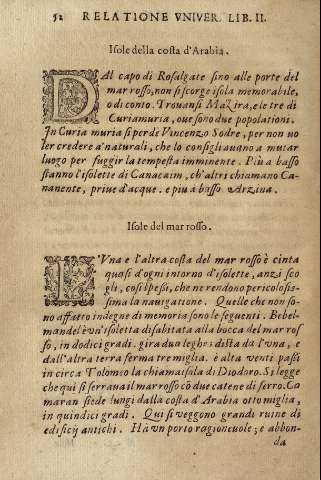 52 RELATIONE VNIVER. LIB. II.
Isole della costa d'Arabia.
DAl capo di Rosalgate sino alle porte del
mar rosso, non si scorge isola memorabile,
o di conto. Trouansi Mazira, e le tre di
Curiamuria, oue sono due popolationi.
In Curia muria si perdè Vincenzo Sodre, per non uo
ler credere a' naturali, che lo consigliauano a mutar
luogo per fuggir la tempesta imminente. Più a basso
stanno l'isolette di Canacaim, ch'altri chiamano Ca-
nanente, priue d'acque. e piu a basso Arzina.
Isole del mar rosso.
L'Vna e l'altra costa del mar rosso è cinta
quasi d'ogni intorno d'isolette, anzi sco
gli, così spessi, che ne rendono pericolosis-
sima la nauigatione. Quelle che non so-
no affatto indegne di memoria sono le seguenti. Bebel-
mandel è vn'isoletta disabitata alla bocca del mar ros
so, in dodici gradi. gira due leghe: dista da l'vna, e
dall'altra terra ferma tre miglia. è alta venti passi
in circa Tolomeo la chiama isola di Diodoro. Si legge
che quì si serraua il mar rosso cō due catene di ferro. Ca
maran siede lungi dalla costa d'Arabia otto miglia,
in quindici gradi. Qui si veggono grandi ruine di
edificij antichi. Hà vn porto ragioneuole; e abbon-
da